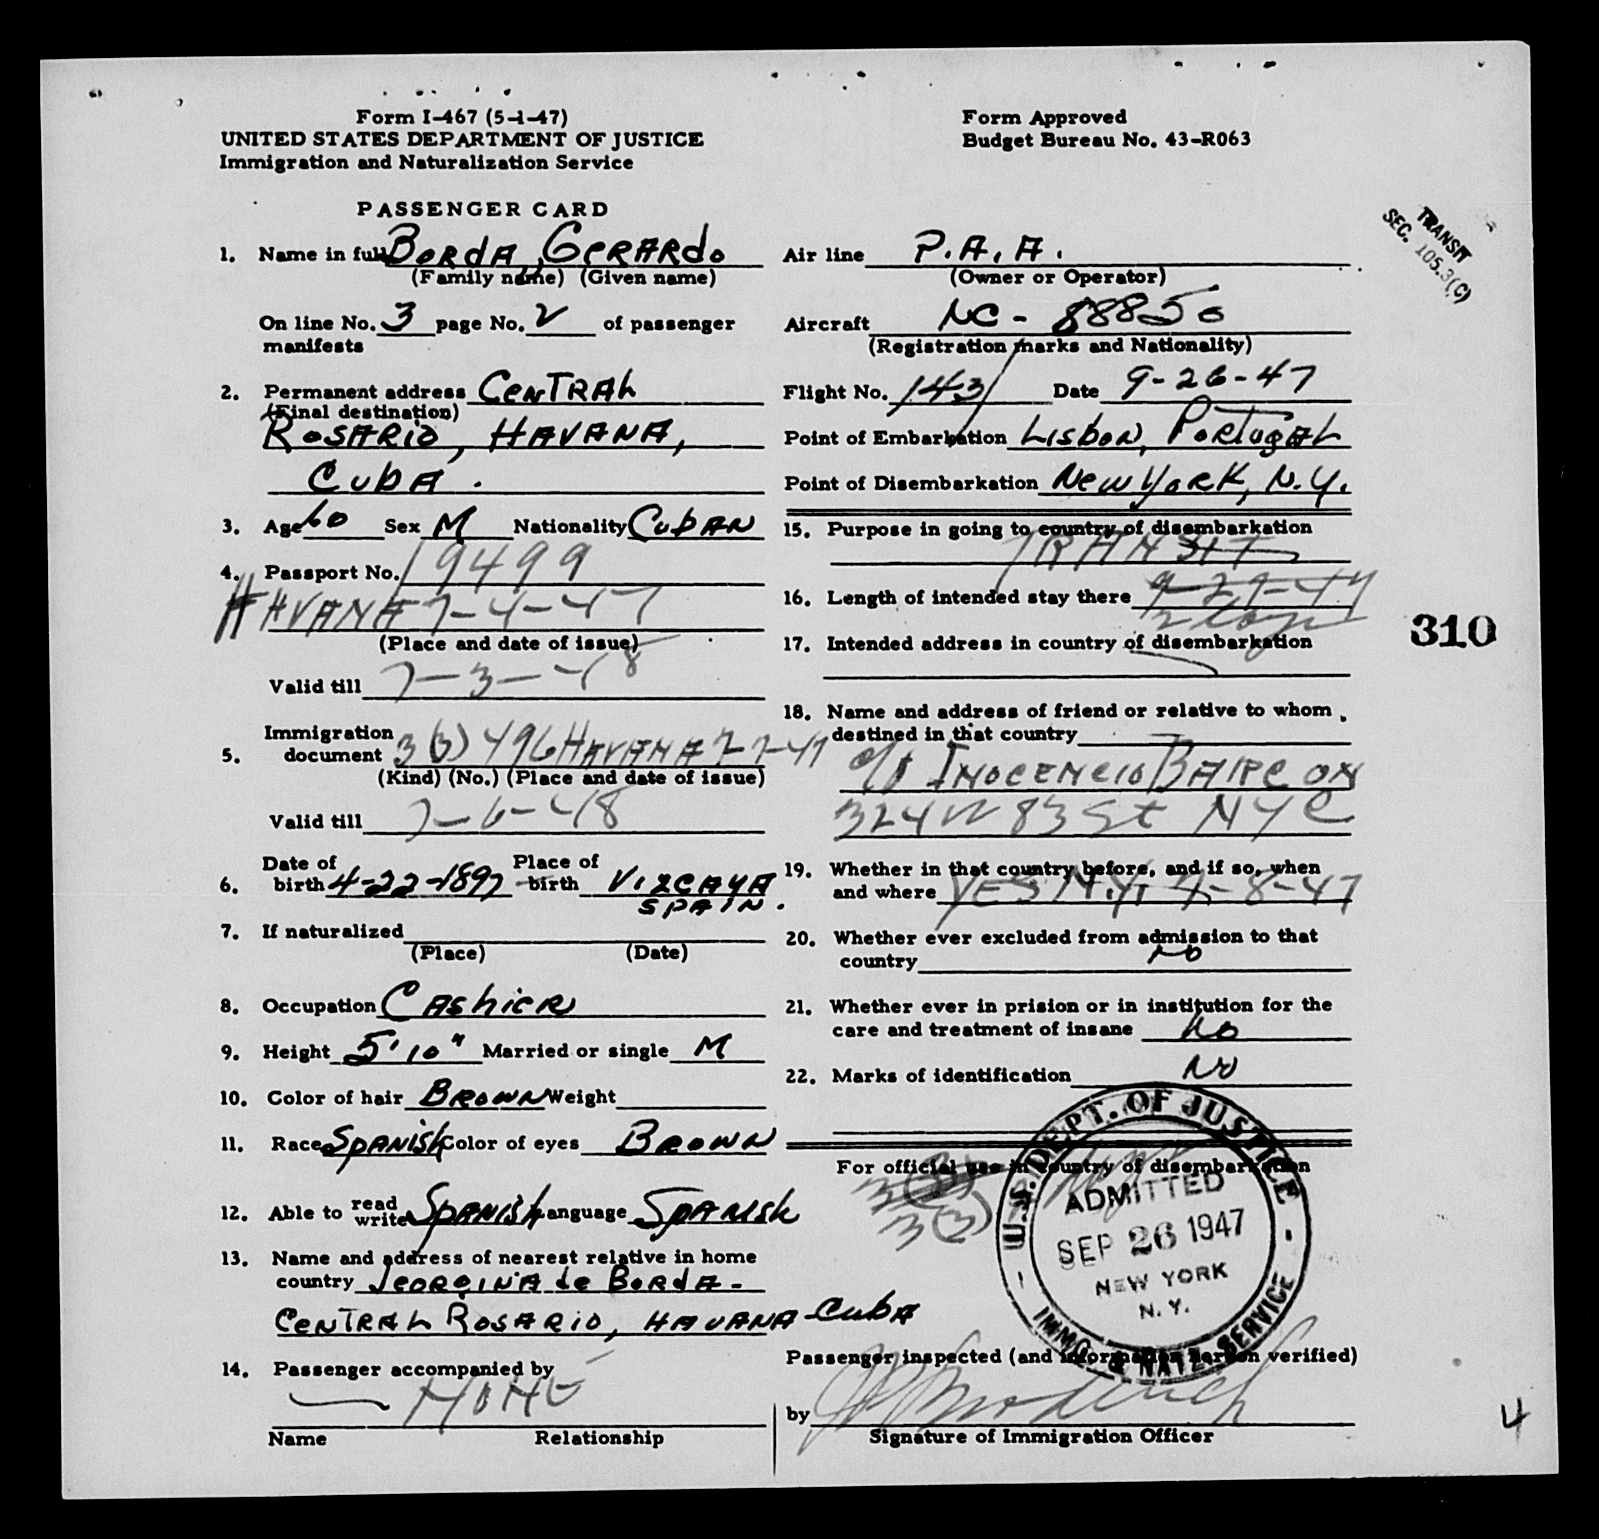 Form I-467 (5-1-47)
UNITED STATES DEPARTMENT OF JUSTICE
Immigration and Naturalization Service
Form Approved
Budget Bureau No. 43-R063
PASSENGER CARD
TRANSIT
SEC. 105.3(C)
1. Name in full BORDA, GERARDO
(Family name) (Given name)
On line No. 3 page No. 2 of passenger
manifests
2. Permanent address CENTRAL
(Final destination)
ROSARIO, HAVANA,
CUBA.
3. Age 60 Sex M Nationality CUBAN
4. Passport No. 19499
HAVANA 7-4-47
(Place and date of issue)
Valid till 7-3-48
Immigration
5. document 3(3) 496 HAVANA 7-7-47
(Kind) (No.) (Place and date of issue)
Valid till 7-6-48
Date of Place of
6. birth 4-22-1897 birth VIZCAYA
SPAIN.
7. If naturalized
(Place) (Date)
8. Occupation CASHIER
9. Height 5'10" Married or single M
10. Color of hair BROWN Weight
11. Race SPANISH Color of eyes BROWN
12. Able to read write SPANISH Language SPANISH
13. Name and address of nearest relative in home
country JEORGINA de BORDA -
CENTRAL ROSARIO, HAVANA - CUBA
14. Passenger accompanied by
NONE
Name Relationship
Air line P.A.A.
(Owner or Operator)
Aircraft NC - 88850
(Registration marks and Nationality)
Flight No. 143 Date 9-26-47
Point of Embarkation LISBON, PORTUGAL
Point of Disembarkation NEW YORK, N.Y.
15. Purpose in going to country of disembarkation
TRANSIT
16. Length of intended stay there 9-29-47
2 days
17. Intended address in country of disembarkation
18. Name and address of friend or relative to whom
destined in that country
c/o INOCENCIO BARCON
324 W 83 St NYC
19. Whether in that country before, and if so, when
and where YES N.Y. 4-8-47
20. Whether ever excluded from admission to that
country NO
21. Whether ever in prision or in institution for the
care and treatment of insane No
22. Marks of identification NO
For official use in country of disembarkation
3(3)
3(3)
U.S. DEPT. OF JUSTICE
ADMITTED
SEP 26 1947
NEW YORK
N.Y.
IMMG. & NATZ. SERVICE
Passenger inspected (and information hereon verified)
by
Signature of Immigration Officer
310
4